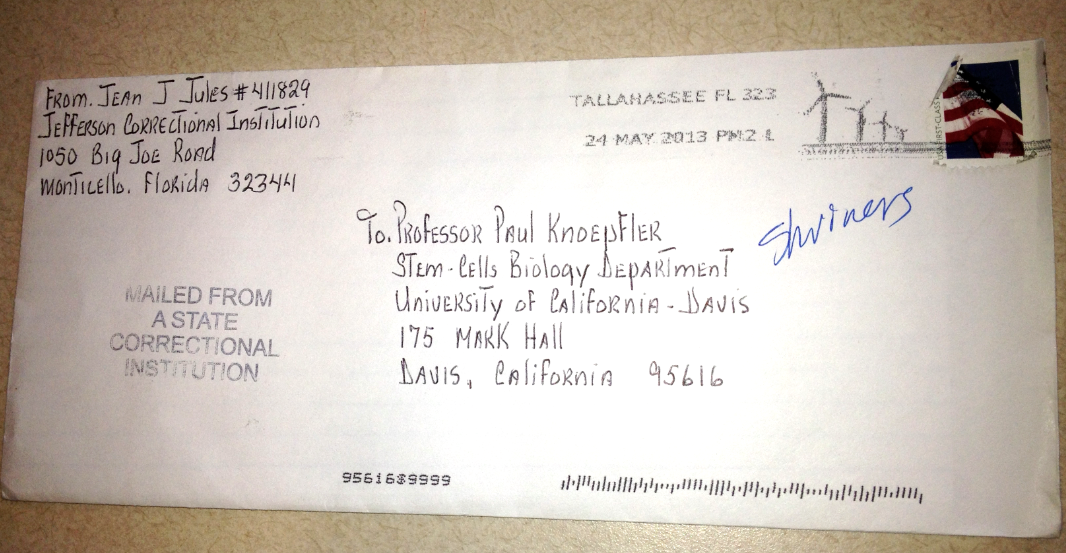 From. Jean J Jules #411829
Jefferson Correctional Institution
1050 Big Joe Road
Monticello. Florida 32344
TALLAHASSEE FL 323
24 MAY 2013 PM 2 L
FIRST-CLASS
To. Professor Paul Knoepfler
Stem-Cells Biology Department
University of California-Davis
175 Mark Hall
Davis, California 95616
Shriners
MAILED FROM
A STATE
CORRECTIONAL
INSTITUTION
95616$9999